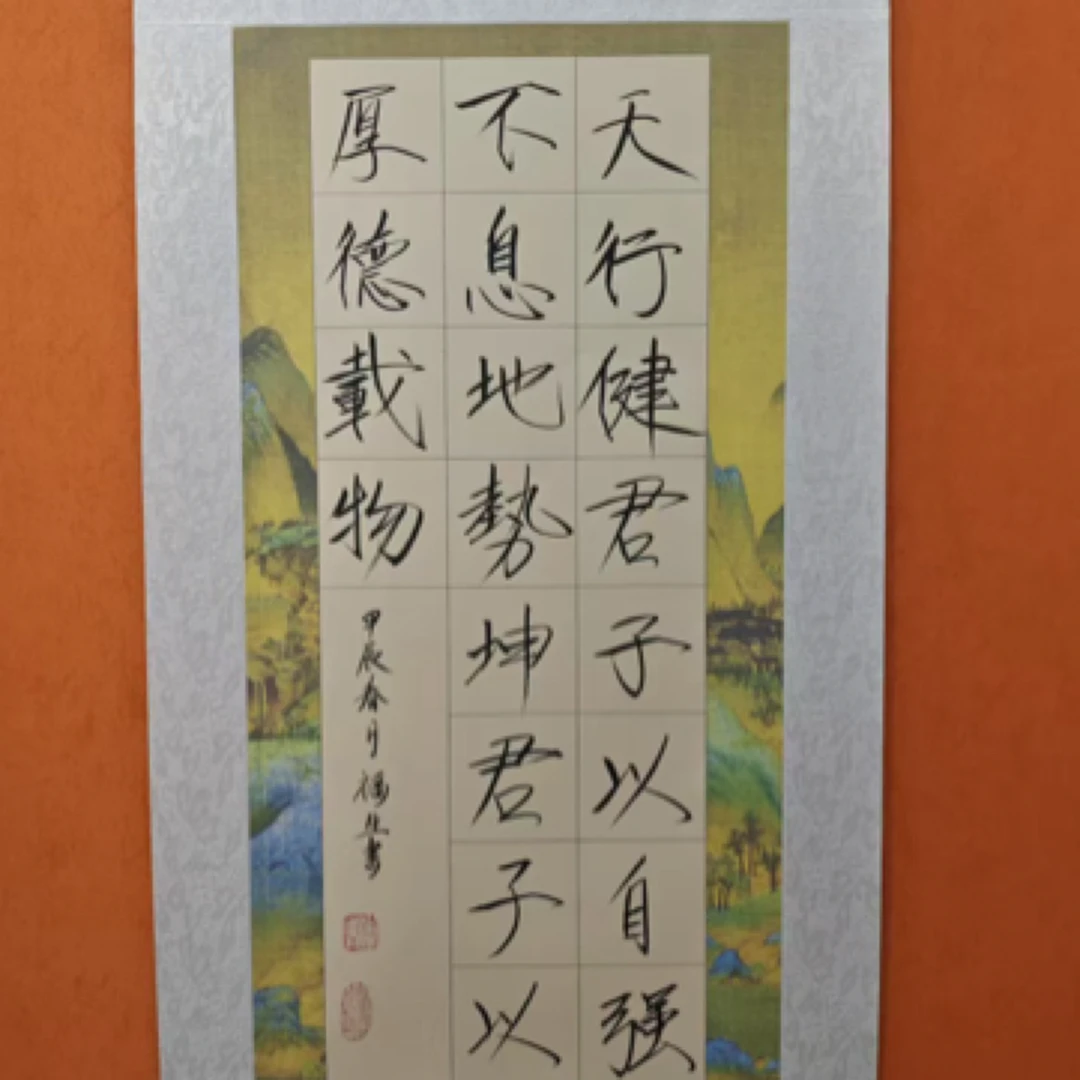 天行健君子以自强
不息地势坤君子以
厚德载物
甲辰春月
书